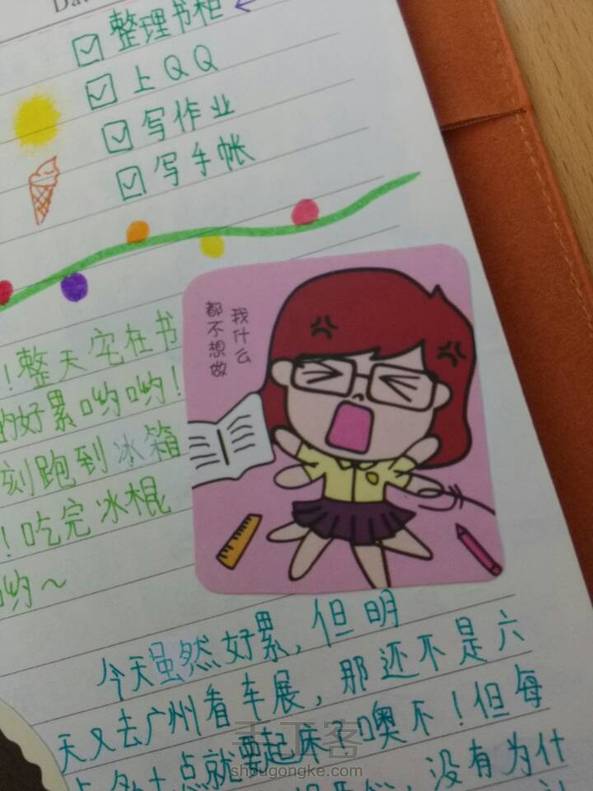 Da
整理书柜
上QQ
写作业
写手帐
我什么
都不想做
！整天宅在书
的好累哟哟！
刻跑到冰箱
！吃完冰棍
哟～
今天虽然好累，但明
天又去广州看车展，那还不是六
点就要起床？噢不！但每
没有为什
手工客
shougongke.com